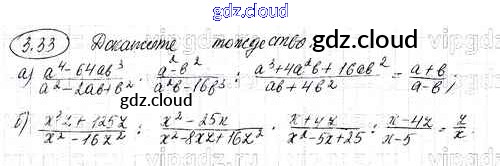 gdz.cloud
3.33 Докажите тождество:
а) (a⁴-64ab³)/(a²-2ab+b²) · (a²-b²)/(a²b-16b³) : (a³+4a²b+16ab²)/(ab+4b²) = (a+b)/(a-b);
gdz.cloud
gdz.cloud
б) (x³z+125z)/(x²-16z²) : (x²-25x)/(x²-8xz+16z²) · (x+4z)/(x²-5x+25) : (x-4z)/(x-5) = z/x.
gdz.cloud